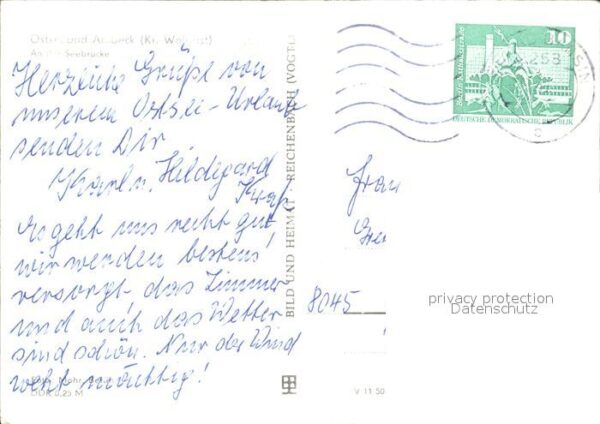 Ostseebad Ansbeck (Kr. Wolgast)
An der Seebrücke
Herzliche Grüße von
unserem Ostsee-Urlaub
senden Dir
Karl u. Hildegard
Es geht uns recht gut,
wir werden bestens
versorgt, das Zimmer
und auch das Wetter
sind schön. Nur der Wind
weht mächtig!
Foto: Mohr, Berlin
DDR 0,25 M
BILD UND HEIMAT REICHENBACH (VOGTL)
V 11 50
10
DEUTSCHE DEMOKRATISCHE REPUBLIK
Frau
8045
privacy protection
Datenschutz